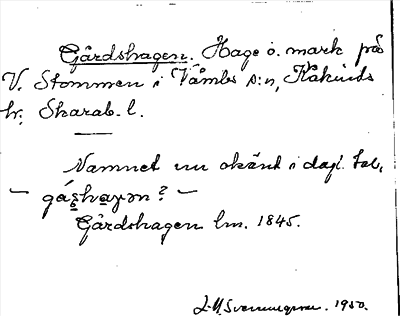 Gårdshagen. Hage o. mark på
V. Stommen i Våmbs s:n, Kåkinds
hr, Skarab. l.
Namnet nu okänt i dagl. tal,
– gáʂhaɣən? –
Gårdshagen lm. 1845.
1950.